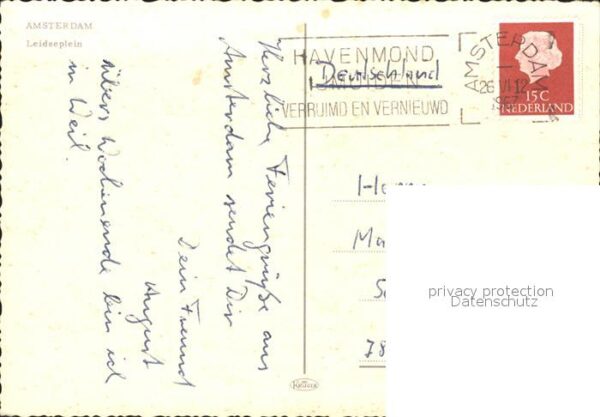 AMSTERDAM
Leidseplein
Herzliche Feriengrüße aus
Amsterdam sendet Dir
Dein Freund
August
übers Wochenende bin ich
in Weil.
HAVENMOND
IJMUIDEN
VERRUIMD EN VERNIEUWD
Deutschland
AMSTERDAM
26 VI 12
15C
NEDERLAND
Herrn
Ma
78
privacy protection
Datenschutz